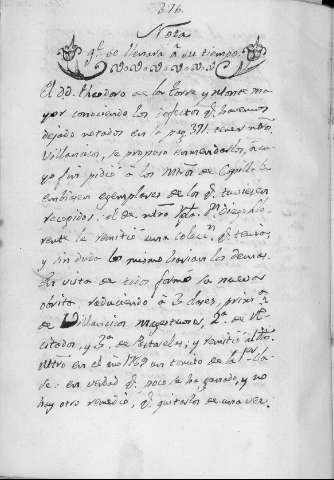 376.
Nota
q.e se llenara à su tiempo.
El D.D. Theodoro de la Torre y
yor conociendo los defectos q.e havemos
dejado notados en la pag. 371. tener ntros
Villancicos, se propuso enmendarlos, à cu
yo fin pidió à los Mtros de Capilla le
embiasen egemplares de los q.e tuviesen
recogidos: el de ntro D.n Diego Llo
rente le remitió una colecc.n q.e tenia
y sin duda lo mismo harian los demas.
En vista de todos formó su nueva
obrita reduciendo à 3 clases, prim.ra
de Villancicos magestuosos, 2.a de Re
citados, y 3.a de Pastorelas; y remitió al
ntro en el año 1769 un tomito de la
se: en verdad q.e poco se ha ganado, y no
hay otro remedio, q.e quitarlos de una vez.